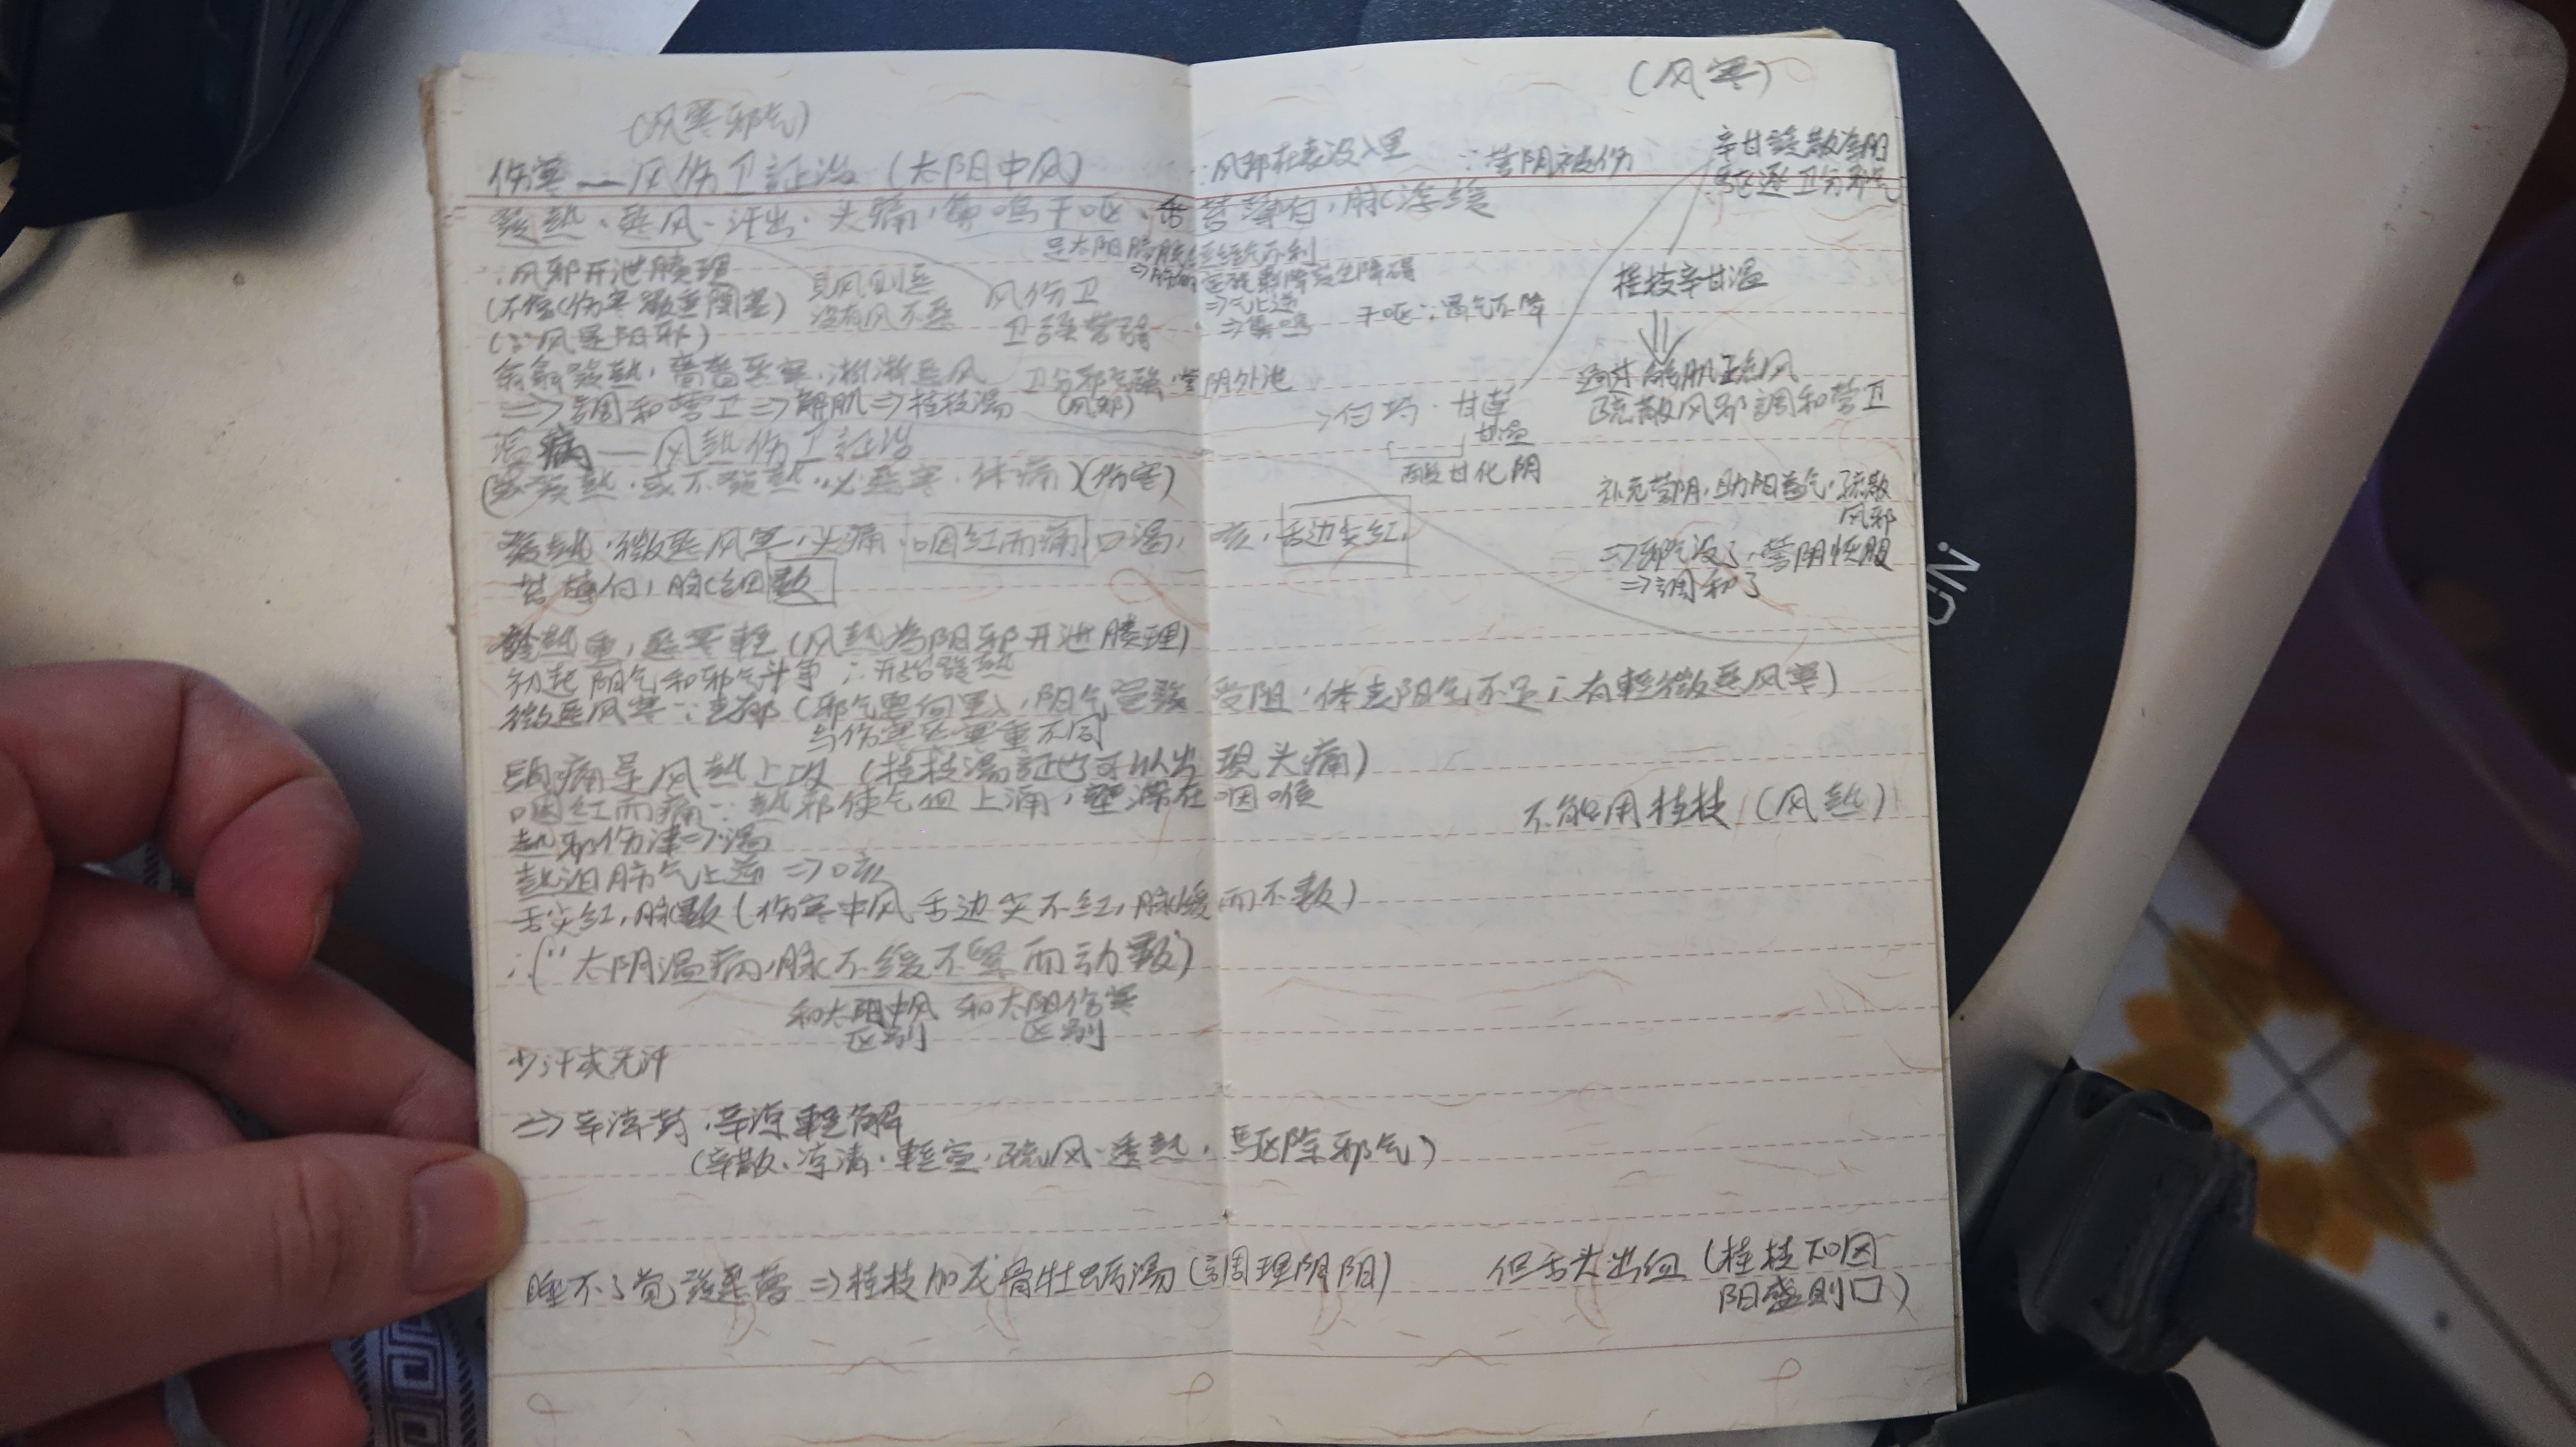 (风寒邪气)
伤寒——风伤卫証治(太阳中风)
發熱·恶风·汗出·头痛,鼻鸣干呕,舌苔薄白,脉浮缓
∵风邪在表没入里
∵营阴被伤
(风寒)
辛甘發散为阳
驱逐卫分邪气
∵风邪开泄腠理
(不像(伤寒嚴重閉塞)
(∵风是阳邪)
見风则恶
没有风不恶
风伤卫
卫强营弱
足太阳膀胱经经气不利
宣發肅降發生障碍
⇒气上逆
⇒鼻鸣
干呕∵胃气不降
桂枝辛甘温
翕翕發熱,嗇嗇恶寒,淅淅恶风
卫分邪气强,营阴外泄
(风邪)
⇒調和营卫⇒解肌⇒桂枝湯
通过解肌疏风
疏散风邪調和营卫
白芍·甘草
甘温
酸甘化阴
补充营阴,助阳益气,疏散
风邪
⇒邪气没了,营阴恢服
⇒調和了
温病——风熱伤卫証治
(或發熱·或不發熱,必恶寒·体痛)(伤寒)
發熱·微恶风寒,头痛,咽红而痛,口渴,咳,舌边尖红,
苔薄白,脉浮数
發熱重,恶寒輕(风熱為阳邪开泄腠理)
初起阳气和邪气斗争∴开始發熱
微恶风寒∵表郁(邪气要向里),阳气宣發受阻,体表阳气不足∴有輕微恶风寒)
与伤寒恶寒重不同
頭痛是风熱上攻(桂枝湯証也可以出現头痛)
咽红而痛∵熱邪使气血上涌,壅滞在咽喉
不能用桂枝(风熱)
熱邪伤津⇒渴
肺气上逆⇒咳
舌尖红,脉数(伤寒中风舌边尖不红,脉缓而不数)
∴("太阴温病,脉不缓不紧而动数")
和太阳中风
区别
和太阳伤寒
区别
少汗或无汗
⇒辛凉輕解
(辛散·凉清·輕宣·疏风·透熱,驱除邪气)
睡不了觉發恶夢⇒桂枝加龙骨牡蛎湯(調理阴阳)
但舌头出血(桂枝下咽
阳盛则口)